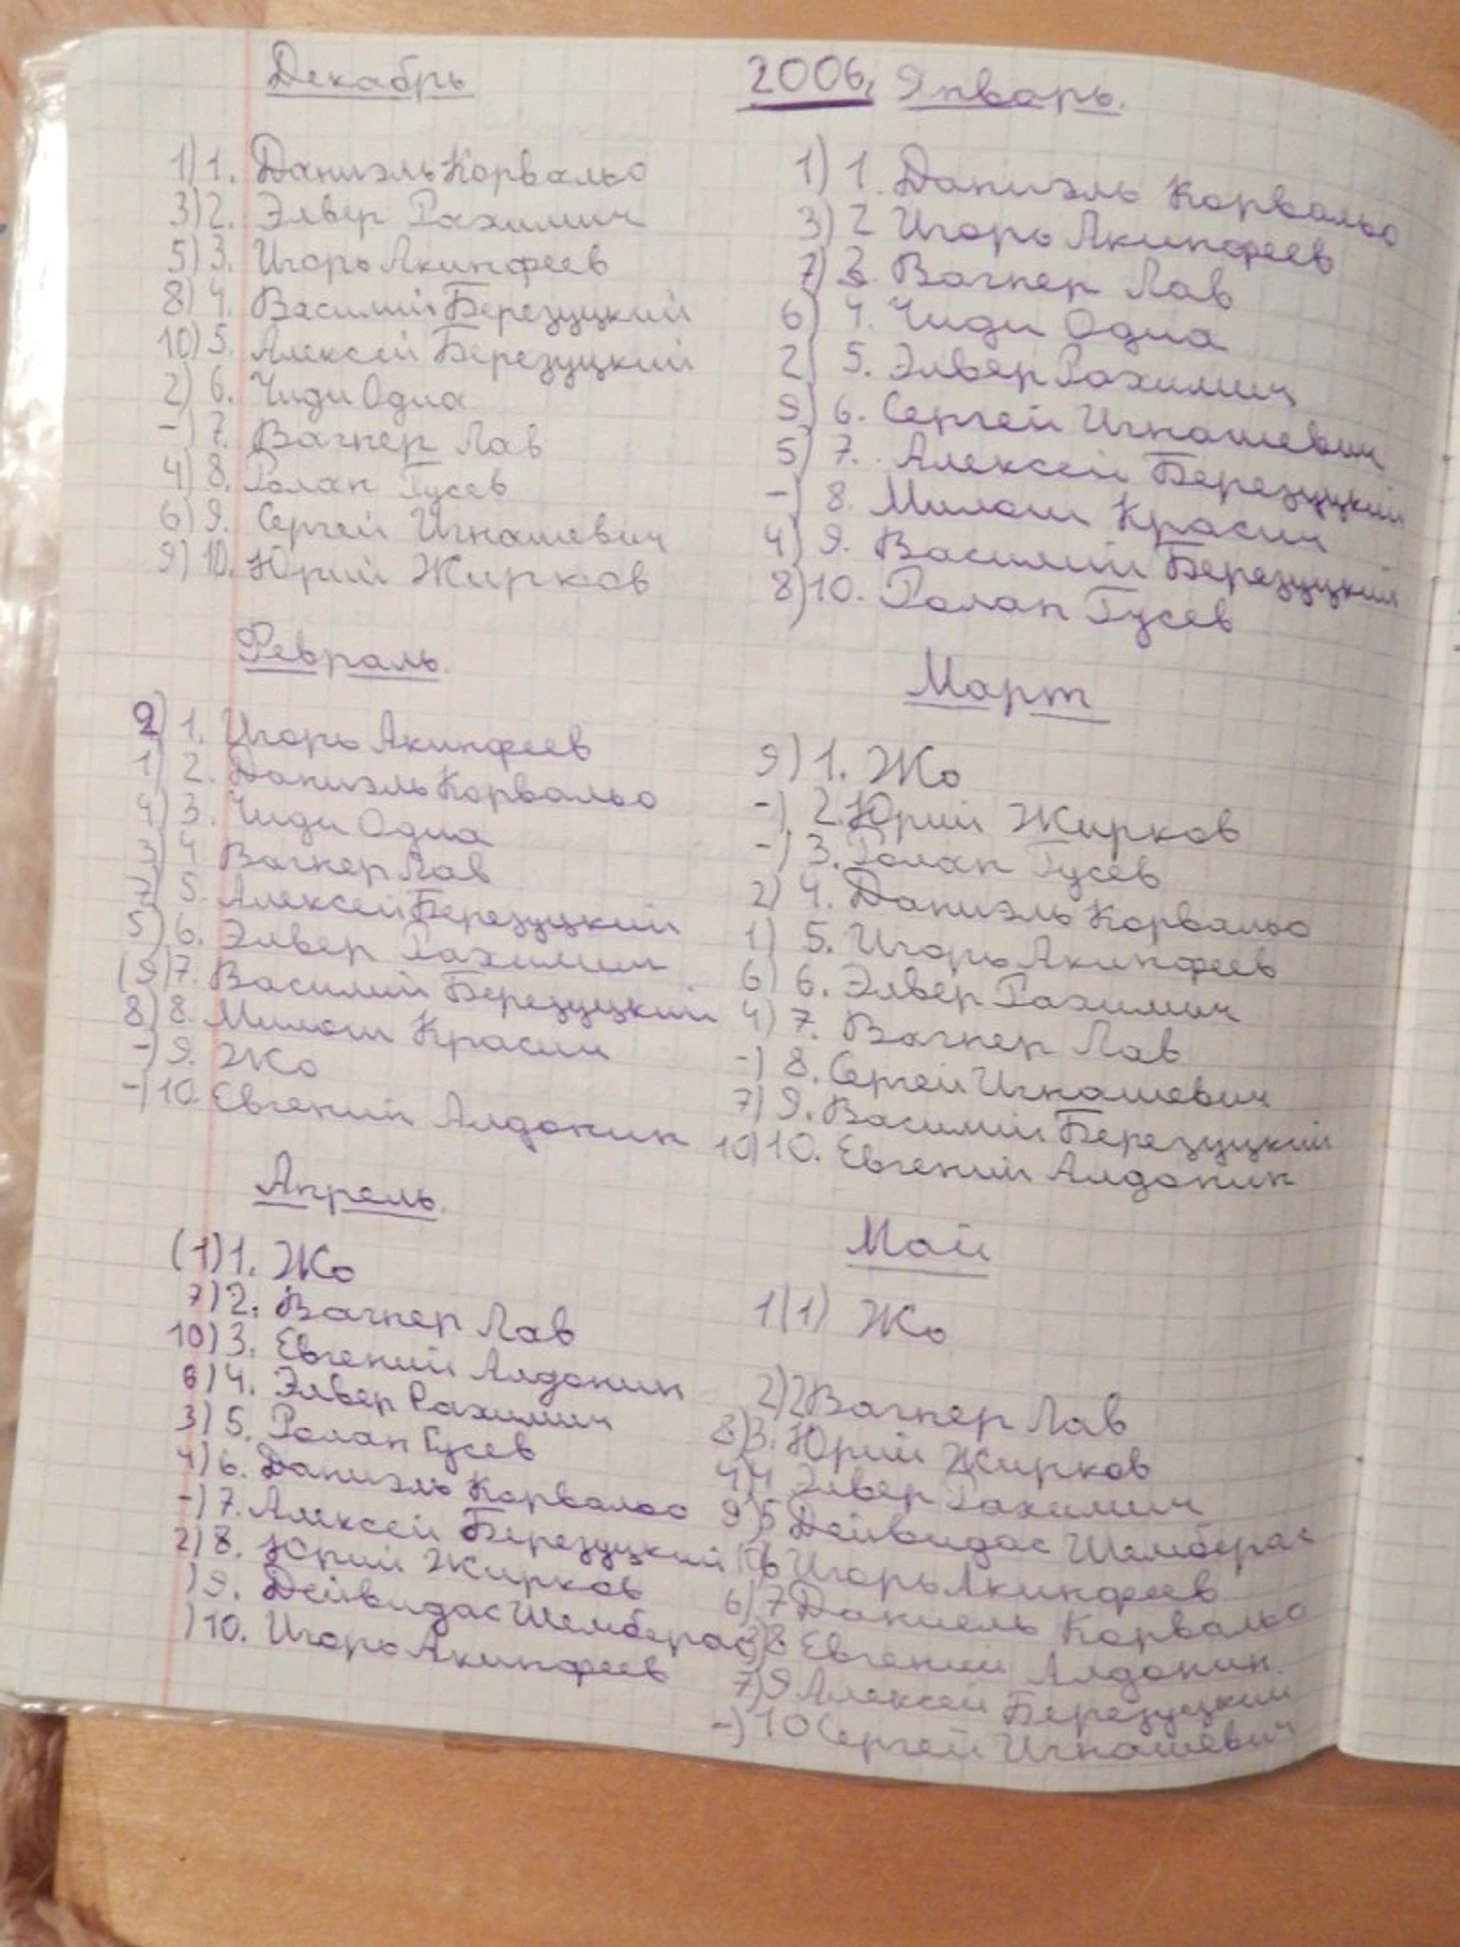 Декабрь
1) 1. Даниэль Корвальо
3) 2. Элвер Рахимич
5) 3. Игорь Акинфеев
8) 4. Василий Березуцкий
10) 5. Алексей Березуцкий
2) 6. Чиди Одиа
-) 7. Вагнер Лав
4) 8. Ролан Гусев
6) 9. Сергей Игнашевич
9) 10. Юрий Жирков
2006, Январь.
1) 1. Даниэль Корвальо
3) 2 Игорь Акинфеев
7) 3. Вагнер Лав
6) 4. Чиди Одиа
2) 5. Элвер Рахимич
9) 6. Сергей Игнашевич
5) 7. Алексей Березуцкий
-) 8. Милош Красич
4) 9. Василий Березуцкий
8) 10. Ролан Гусев
Февраль.
2) 1. Игорь Акинфеев
1) 2. Даниэль Корвальо
4) 3. Чиди Одиа
3) 4 Вагнер Лав
7) 5. Алексей Березуцкий
5) 6. Элвер Рахимич
(9) 7. Василий Березуцкий
8) 8. Милош Красич
-) 9. Жо
-) 10. Евгений Алдонин
Март
9) 1. Жо
-) 2. Юрий Жирков
-) 3. Ролан Гусев
2) 4. Даниэль Корвальо
1) 5. Игорь Акинфеев
6) 6. Элвер Рахимич
4) 7. Вагнер Лав
-) 8. Сергей Игнашевич
7) 9. Василий Березуцкий
10) 10. Евгений Алдонин
Апрель.
(1) 1. Жо
7) 2. Вагнер Лав
10) 3. Евгений Алдонин
6) 4. Элвер Рахимич
3) 5. Ролан Гусев
4) 6. Даниэль Корвальо
-) 7. Алексей Березуцкий
2) 8. Юрий Жирков
) 9. Дейвидас Шемберас
) 10. Игорь Акинфеев
Май
1(1) Жо
2) 2 Вагнер Лав
8) 3. Юрий Жирков
4) 4 Элвер Рахимич
9) 5 Дейвидас Шемберас
6 Игорь Акинфеев
6) 7 Даниель Корвальо
8 Евгений Алдонин.
7) 9 Алексей Березуцкий
-) 10 Сергей Игнашевич